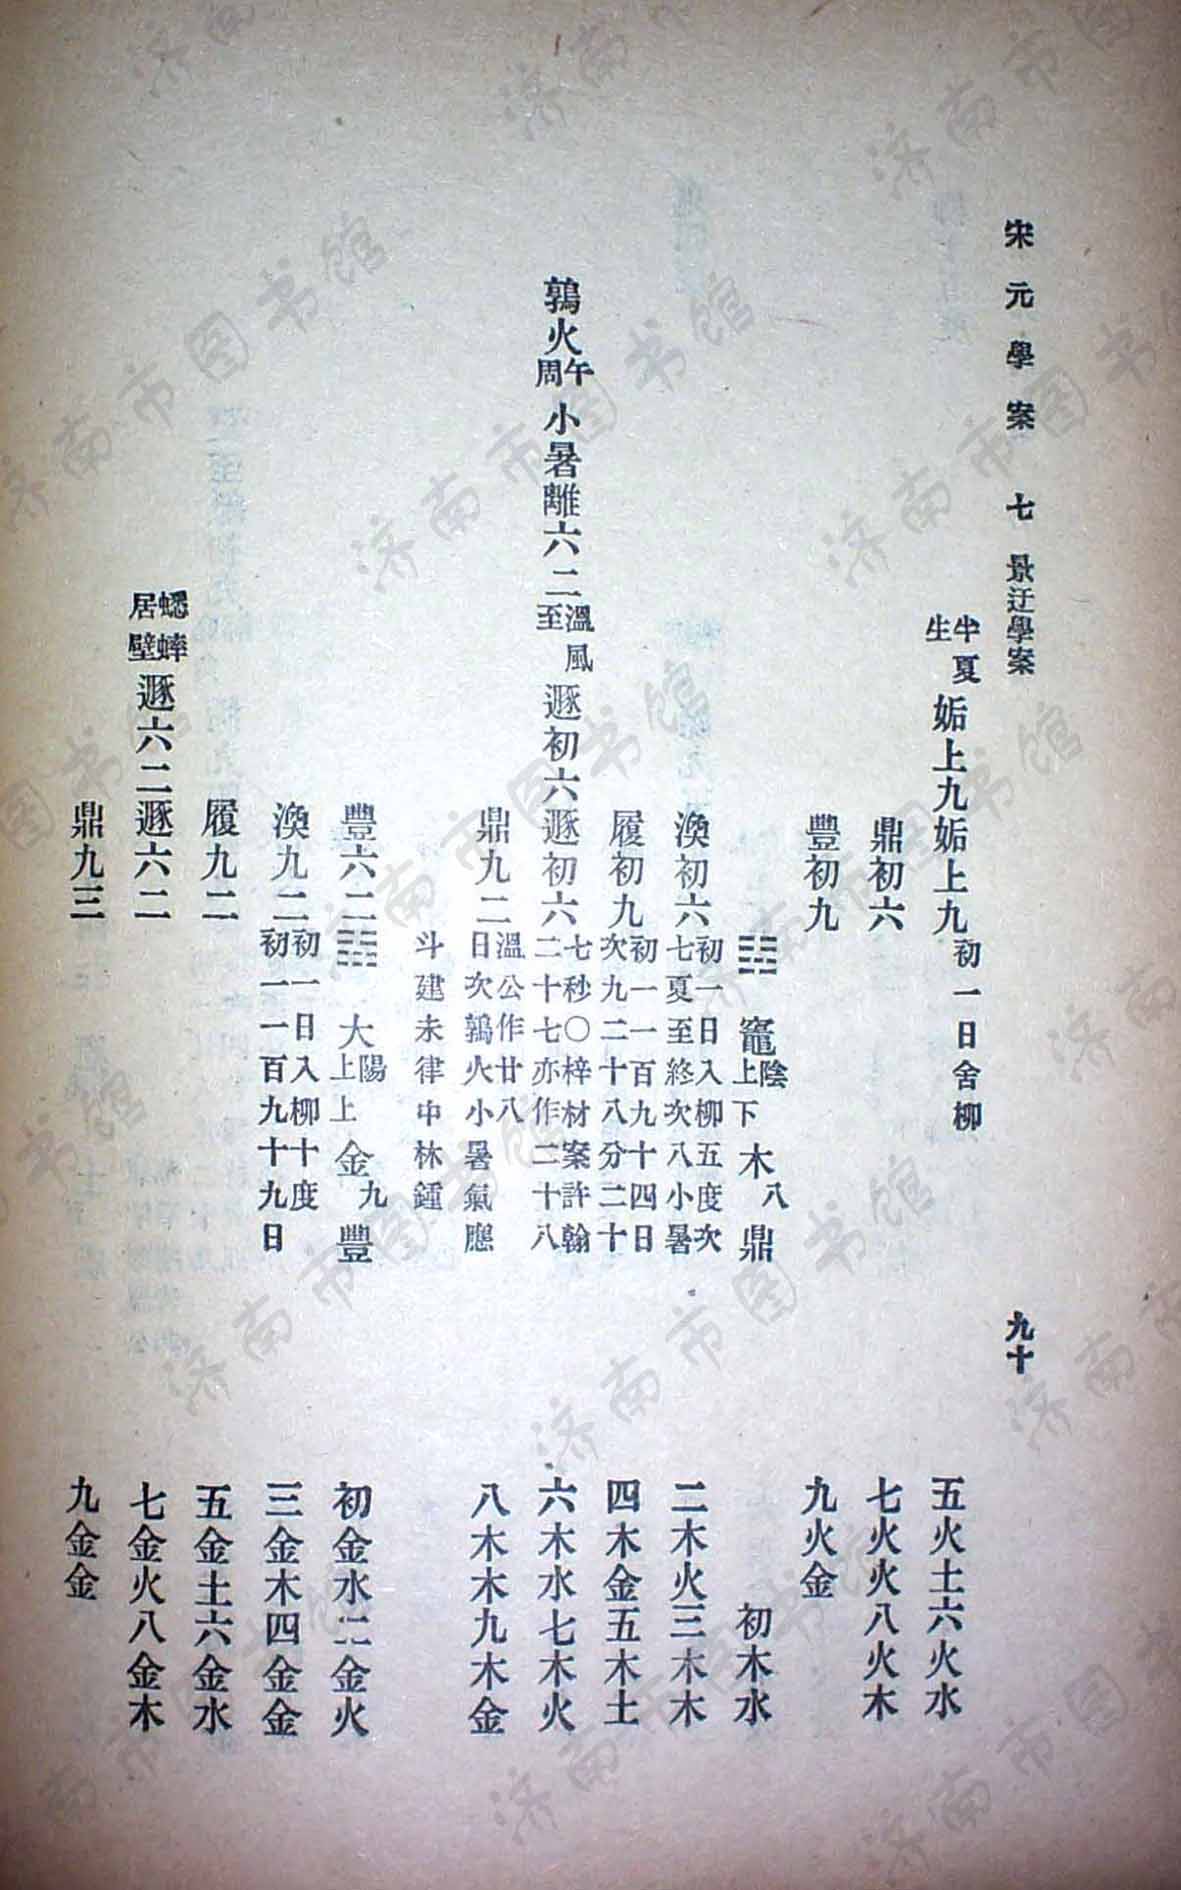 宋元學案 七 景迂學案 九十
半夏生 姤上九 姤上九 初一日舍柳 五火土六火水
鼎初六 七火火八火木
豐初九 九火金
竈 陰上下 木八 鼎 初木水
渙初六 初一日入柳五度次七夏至終次八小暑 二木火三木木
履初九 初一一百九十四日次九二十八分二十 四木金五木土
鶉火 午周 小暑 離六二 溫風至 遯初六 遯初六 七秒〇梓材案許翰二十七亦作二十八 六木水七木火
鼎九二 溫公作廿八日次鶉火小暑氣應 八木木九木金
斗建未律中林鍾
豐六二 大 陽上上 金九 豐 初金水二金火
渙九二 初一日入柳十度初一一百九十九日 三金木四金金
履九二 五金土六金水
蟋蟀居壁 遯六二 遯六二 七金火八金木
鼎九三 九金金
济南市图书馆